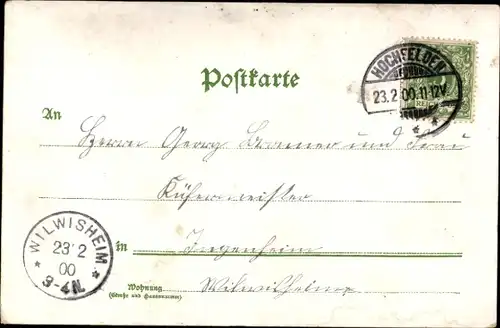 HOCHFELDEN
23.2.00.11-12V.
* *
Postkarte
An
Herrn Georg Brunner und Frau
Küfermeister
in Ingenheim
Wilwisheim
WILWISHEIM
23 2
00
* 3-4N. *
Wohnung
(Straße und Hausnummer)